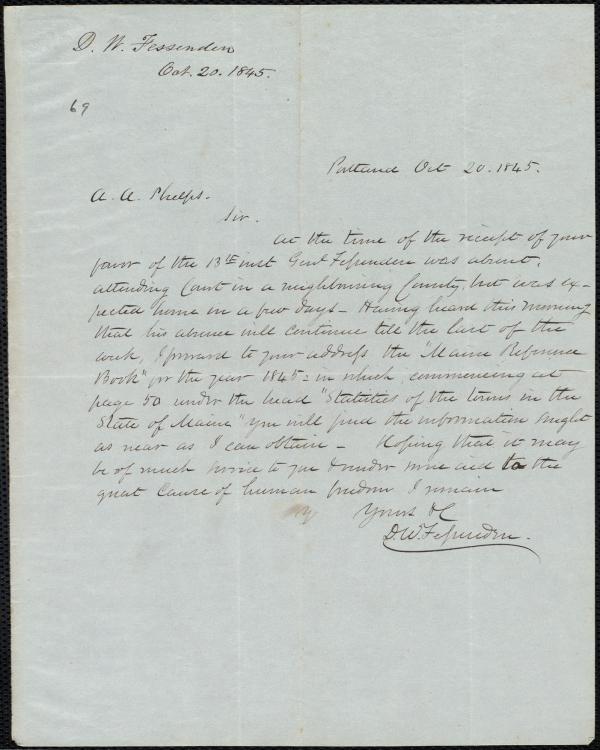 D. W. Fessenden
Oct. 20. 1845.
69
Portland Oct 20. 1845.
A. A. Phelps.
Sir.
At the time of the receipt of your
favor of the 13th inst Genl Fessenden was absent,
attending Court in a neighbouring County, but was ex-
pected home in a few days - Having heard this morning
that his absence will continue till the last of the
week, I forward to your address the "Maine Reference
Book" for the year 1845 - in which, commencing at
page 50 under the head "Statistics of the towns in the
State of Maine" you will find the information sought
as near as I can obtain - Hoping that it may
be of much service to you & render some aid to the
great cause of human freedom I remain
Yours &c
D. W. Fessenden.